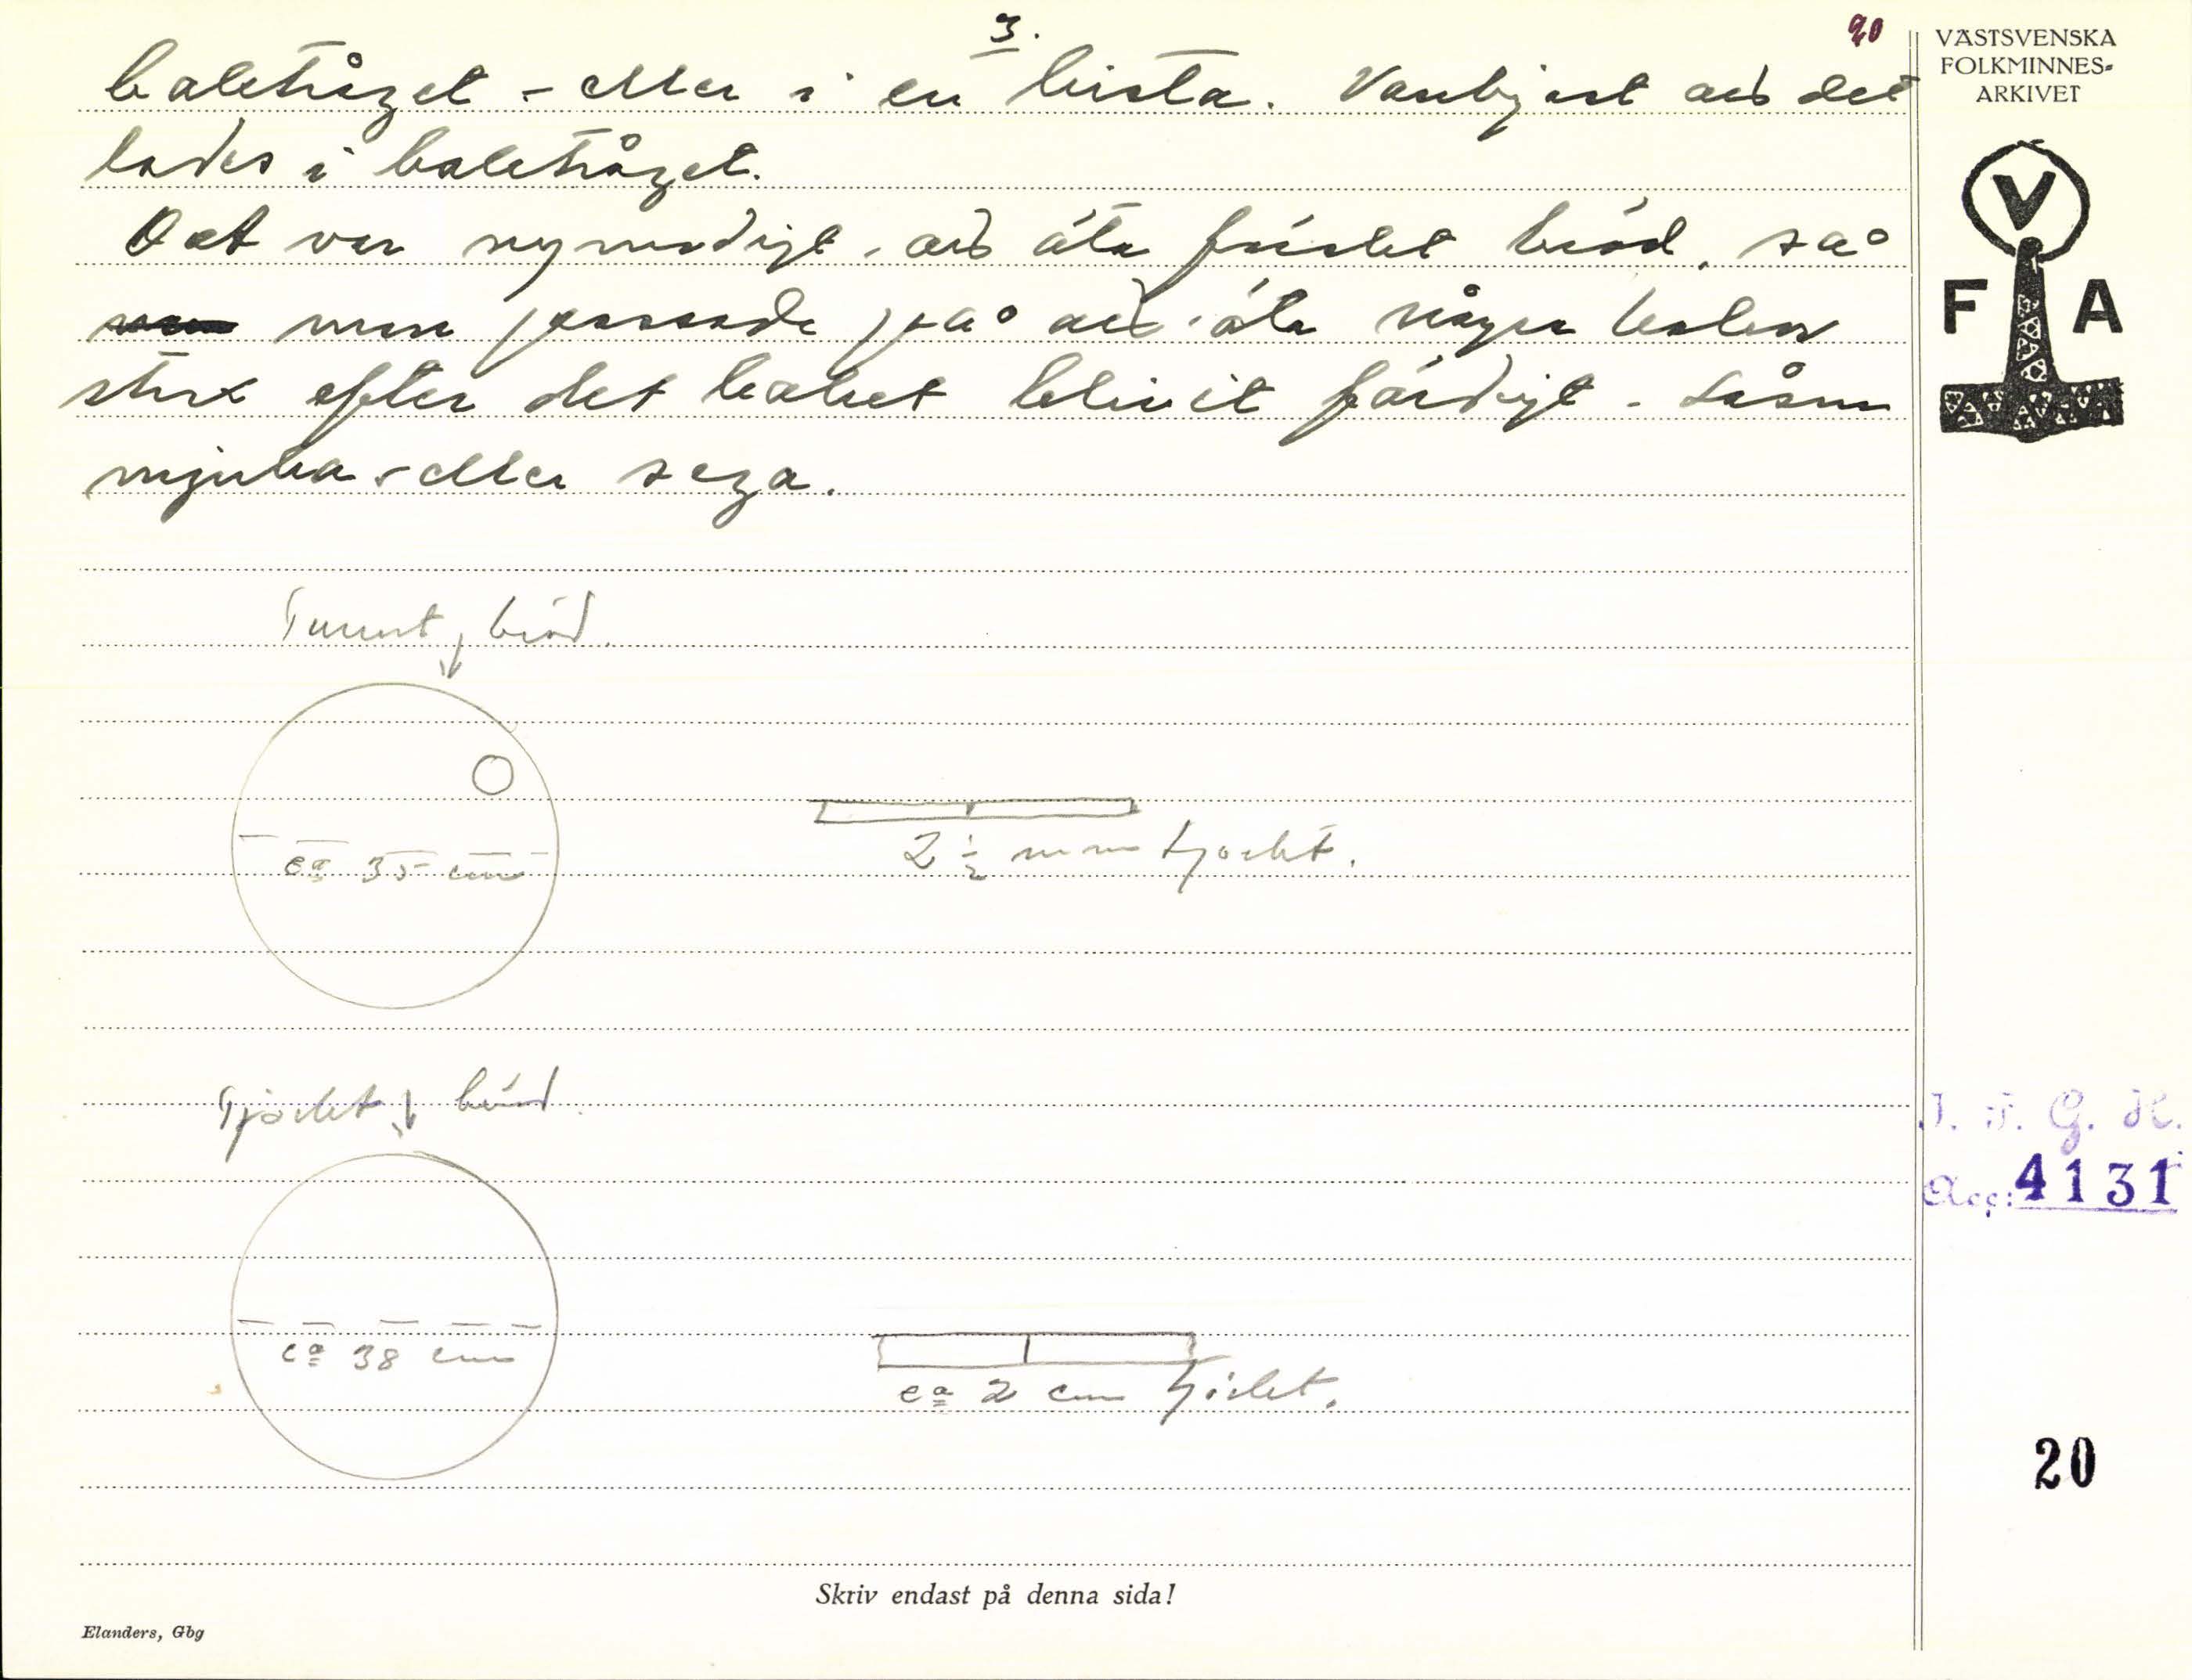 3.
20
baketråget - eller i en kista. Vanligast att det
lades i baketråget.
Det var nymodigt, att äta färskt bröd, så
man passade på att äta några kakor
strax efter det baket blivit färdigt - såsom
mjuka - eller sega.
Tunnt bröd.
ca 35 cm
2 ½ mm tjockt.
Tjockt bröd.
ca 38 cm
ca 2 cm tjockt.
Skriv endast på denna sida!
Elanders, Gbg
VÄSTSVENSKA
FOLKMINNES-
ARKIVET
V
F A
I. F. G. H.
Acc: 4131
20